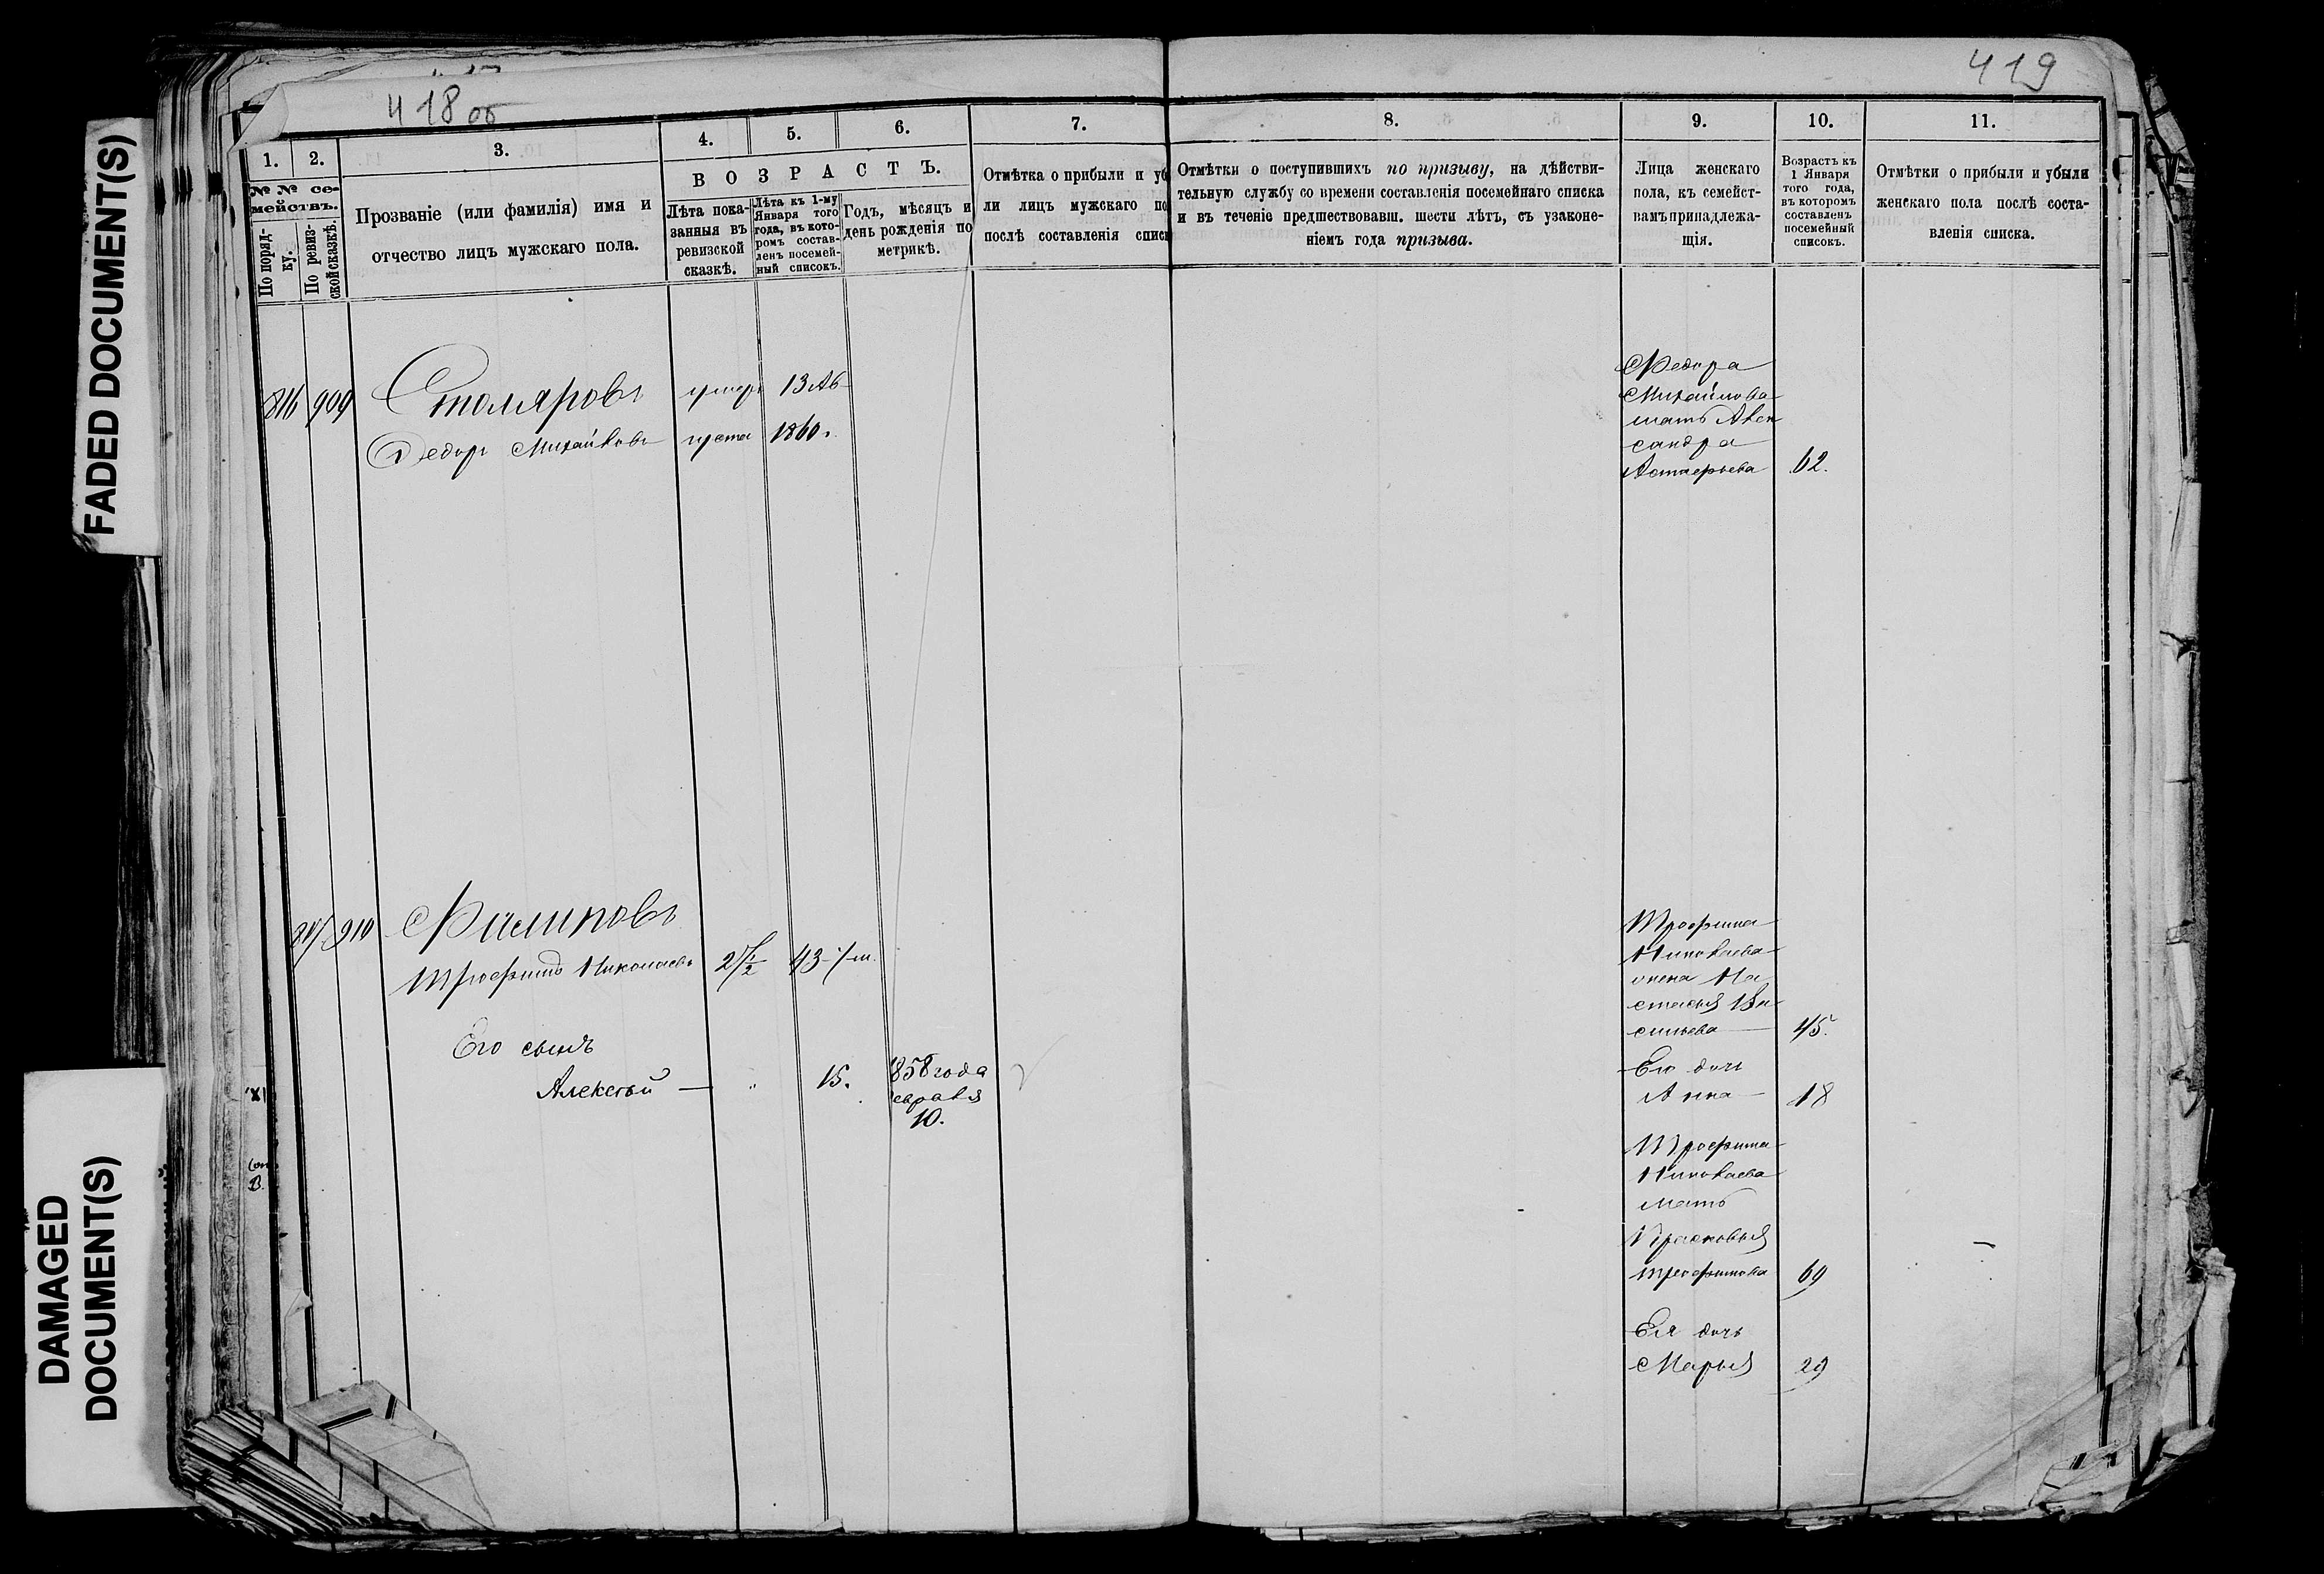 FADED DOCUMENT(S)
DAMAGED
DOCUMENT(S)
418 об
419
1.
2.
3.
4.
5.
6.
7.
8.
9.
10.
11.
№ № се-
мействъ.
По поряд-
ку.
По ревиз-
ской сказкѣ.
Прозваніе (или фамилія) имя и
отчество лицъ мужскаго пола.
ВОЗРАСТЪ.
Лѣта пока-
занныя въ
ревизской
сказкѣ.
Лѣта къ 1-му
Января того
года, въ кото-
ромъ состав-
ленъ посемей-
ный списокъ.
Годъ, мѣсяцъ и
день рожденія по
метрикѣ.
Отмѣтка о прибыли и уб
ли лицъ мужскаго по
послѣ составленія списк
Отмѣтки о поступившихъ по призыву, на дѣйстви-
тельную службу со времени составленія посемейнаго списка
и въ теченіе предшествовавш. шести лѣтъ, съ узаконе-
ніемъ года призыва.
Лица женскаго
пола, къ семейст-
вамъ принадлежа-
щія.
Возрастъ къ
1 Января
того года,
въ которомъ
составленъ
посемейный
списокъ.
Отмѣтки о прибыли и убыли
женскаго пола послѣ соста-
вленія списка.
816 909 Столяровъ умеръ 13 Ав
Федоръ Михайловъ густа 1860 г.
Федора
Михайлова
мать Алек
сандра
Астаерьева 62.
910 Филиповъ
Трофимъ Николаевъ 27 1/2 43
Его сынъ
Алексѣй — " 15. 1858 года
евраля
10.
Трофима
Николаева
жена На
стасья Ва
сильева 45.
Его дочь
Анна 18
Трофима
Николаева
мать
Прасковья
Трофимова 69
Ея дочь
Марья 29